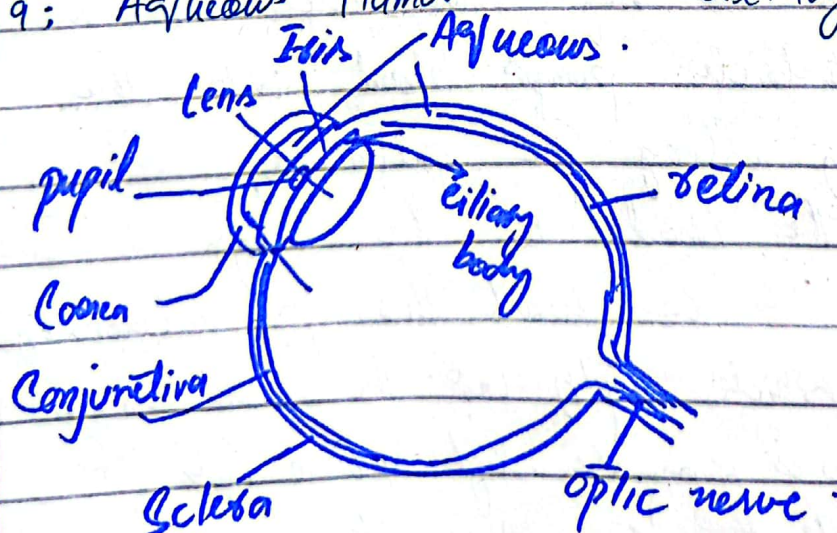 9: Aqueous Humo
Iris
Aqueous.
Lens
pupil
ciliary
body
retina
Cornea
Conjunctiva
Sclera
Optic nerve.